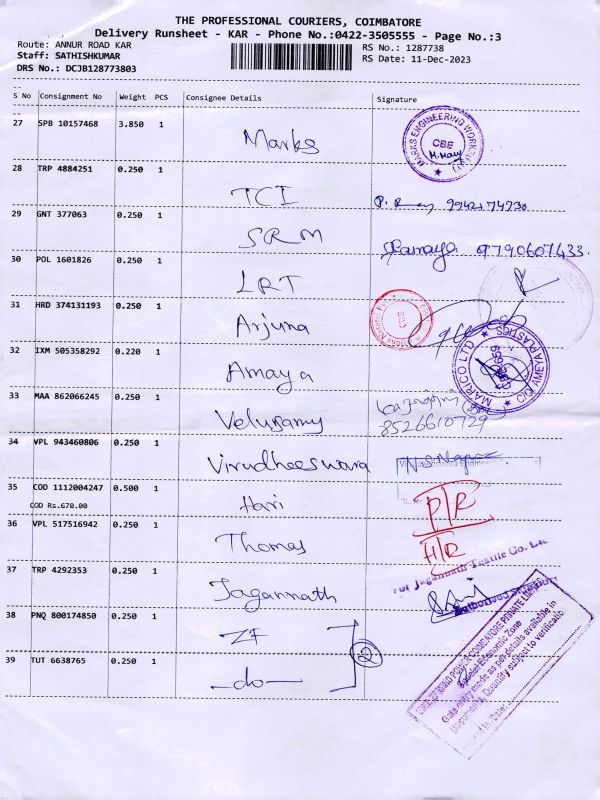 THE PROFESSIONAL COURIERS, COIMBATORE
Delivery Runsheet - KAR - Phone No.:0422-3505555 - Page No.:3
Route: ANNUR ROAD KAR RS No.: 1287738
Staff: SATHISHKUMAR RS Date: 11-Dec-2023
DRS No.: DCJB128773803
S No Consignment No Weight PCS Consignee Details Signature
27 SPB 10157468 3.850 1 Marks
MARKS ENGINEERING WORKS CBE
28 TRP 4884251 0.250 1 TCI
29 GNT 377063 0.250 1 SRM 9790607433
30 POL 1601826 0.250 1 LRT
31 HRD 374131193 0.250 1 Arjuna
32 IXM 505358292 0.220 1 Amaya
MARICO LTD C/O AMEYA PLASTICS
33 MAA 862066245 1 0.250 Velusamy
8526610729
34 VPL 943460806 0.250 1 Virudheeswara
35 COD 1112004247 0.500 1 Hari P/R
COD Rs.670.00
36 VPL 517516942 0.250 1 Thomas H/R
37 TRP 4292353 0.250 1 Jagannath
For Jagannath Textile Co. Ltd
Authorised
38 PNQ 800174850 0.250 1 ZF
2
39 TUT 6638765 0.250 1 -do-
COIMBATORE PRIVATE LIMITED
Special Economic Zone
Gate entry made as per details available in
Documents, Quantity subject to verification